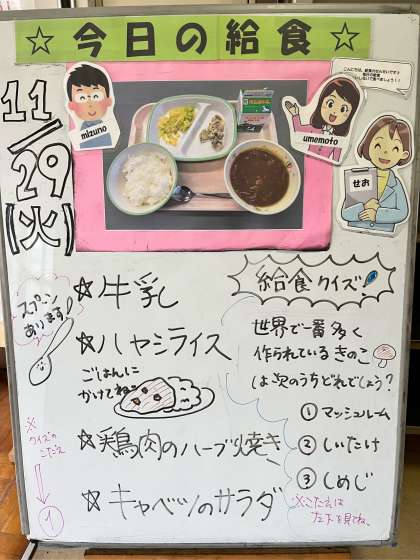 ☆今日の給食☆
11/29(火)
mizuno
umemoto
せお
スプーン
あります!
☆牛乳
☆ハヤシライス
ごはんに
かけてね
☆鶏肉のハーブ焼き
☆キャベツのサラダ
給食クイズ
世界で一番多く
作られているきのこ
は次のうちどれでしょう?
①マッシュルーム
②しいたけ
③しめじ
※こたえは
左下を見てね。
※
クイズの
こたえ
①